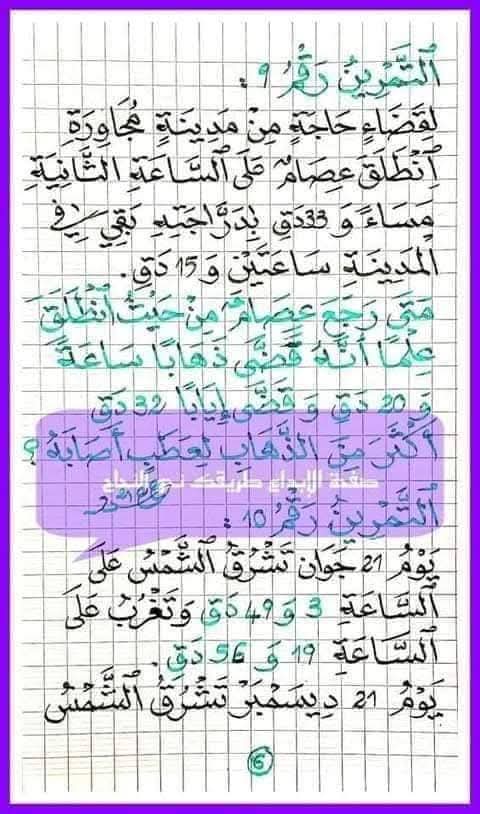 التَّمْرِينُ رَقْمُ 9 :
لِقَضَاءِ حَاجَةٍ مِنْ مَدِينَةٍ مُجَاوِرَةٍ
اِنْطَلَقَ عِصَامٌ عَلَى السَّاعَةِ الثَّانِيَةِ
مَسَاءً وَ 33 دَقِ بِدَرَّاجَتِهِ بَقِيَ فِي
الْمَدِينَةِ سَاعَتَيْنِ وَ 15 دَقِ.
مَتَى رَجَعَ عِصَامٌ مِنْ حَيْثُ انْطَلَقَ
عِلْمًا أَنَّهُ قَضَّى ذَهَابًا سَاعَةً
وَ 20 دَقِ وَ قَضَّى إِيَابًا 32 دَقِ
أَكْثَرَ مِنَ الذَّهَابِ لِعَطَبٍ أَصَابَهُ ؟
صفحة الإبداع طريقك نحو النجاح
التَّمْرِينُ رَقْمُ 10 :
يَوْمُ 21 جَوَان تَشْرُقُ الشَّمْسُ عَلَى
السَّاعَةِ 3 وَ 49 دَقِ وَتَغْرُبُ عَلَى
السَّاعَةِ 19 وَ 56 دَقِ.
يَوْمُ 21 دِيسَمْبَرْ تَشْرُقُ الشَّمْسُ
16